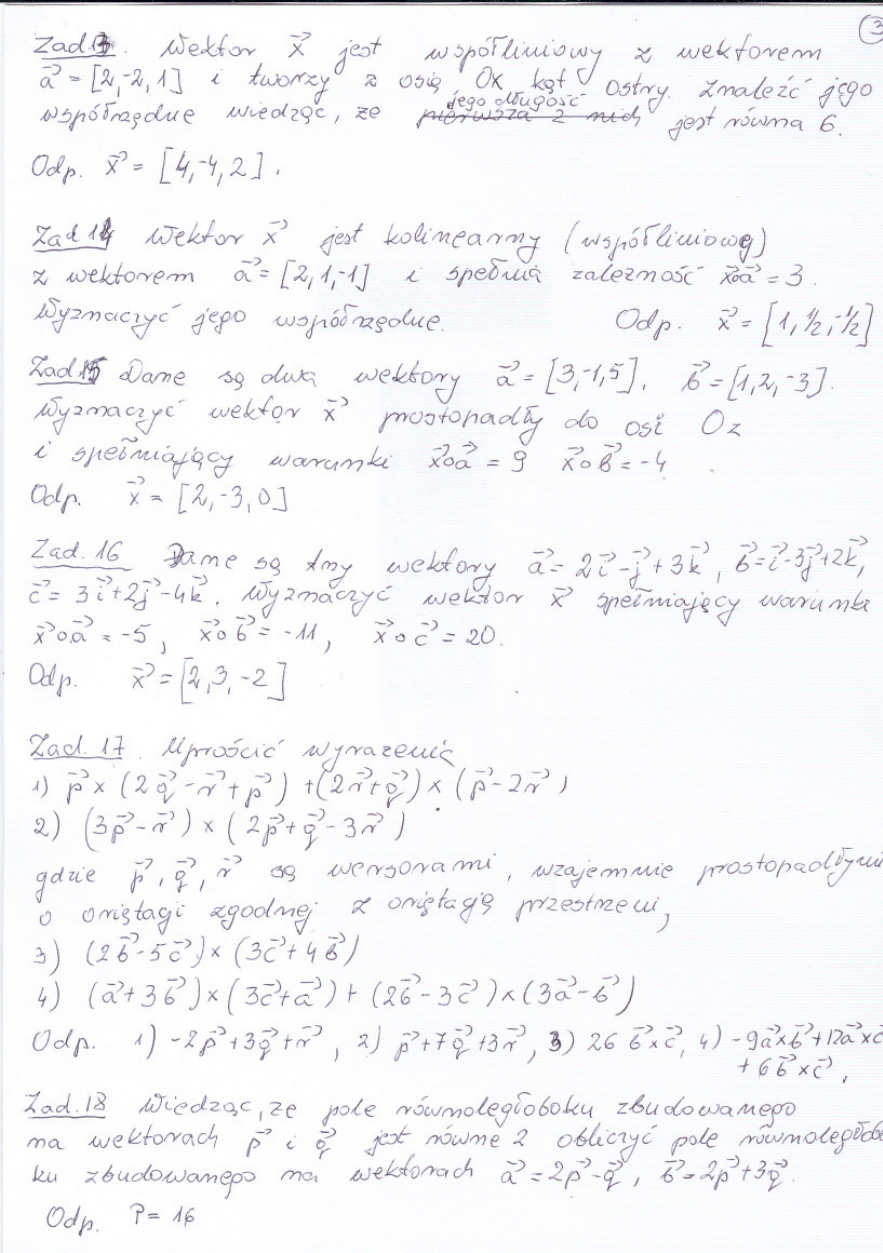 3
Zad.13. Wektor x⃗ jest współliniowy z wektorem
a⃗ = [2,-2,1] i tworzy z osią OX kąt ostry. Znaleźć jego
jego długość
współrzędne wiedząc, że pierwsza z nich jest równa 6.
Odp. x⃗ = [4,-4,2].
Zad 14 Wektor x⃗ jest kolinearny (współliniowy)
z wektorem a⃗ = [2,1,-1] i spełnia zależność x⃗∘a⃗ = 3.
Wyznaczyć jego współrzędne. Odp. x⃗ = [1,½,-½]
Zad 15 Dane są dwa wektory a⃗ = [3,-1,5], b⃗ = [1,2,-3].
Wyznaczyć wektor x⃗ prostopadły do osi Oz
i spełniający warunki x⃗∘a⃗ = 9 x⃗∘b⃗ = -4.
Odp. x⃗ = [2,-3,0]
Zad. 16 Dane są trzy wektory a⃗ = 2i⃗-j⃗+3k⃗, b⃗=i⃗-3j⃗+2k⃗,
c⃗ = 3i⃗+2j⃗-4k⃗. Wyznaczyć wektor x⃗ spełniający warunki
x⃗∘a⃗ = -5, x⃗∘b⃗ = -11, x⃗∘c⃗ = 20.
Odp. x⃗ = [2,3,-2]
Zad. 17. Uprościć wyrażenia
1) p⃗ × (2q⃗ - r⃗ + p⃗) + (2r⃗+q⃗) × (p⃗ - 2r⃗)
2) (3p⃗ - r⃗) × (2p⃗ + q⃗ - 3r⃗)
gdzie p⃗, q⃗, r⃗ są wersorami, wzajemnie prostopadłymi
o orientacji zgodnej z orientacją przestrzeni,
3) (2b⃗-5c⃗) × (3c⃗+4b⃗)
4) (a⃗+3b⃗)×(3c⃗+a⃗) + (2b⃗-3c⃗)×(3a⃗-b⃗)
Odp. 1) -2p⃗+3q⃗+r⃗, 2) p⃗+7q⃗+3r⃗, 3) 26 b⃗×c⃗, 4) -9a⃗×b⃗+12a⃗×c⃗
+6b⃗×c⃗.
Zad.18 Wiedząc, że pole równoległoboku zbudowanego
na wektorach p⃗ i q⃗ jest równe 2 obliczyć pole równoległobo
ku zbudowanego na wektorach a⃗=2p⃗-q⃗, b⃗=2p⃗+3q⃗.
Odp. P= 16